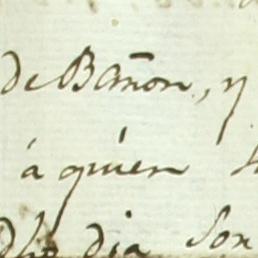 de Bañon, y
á quien
Dho dia Son